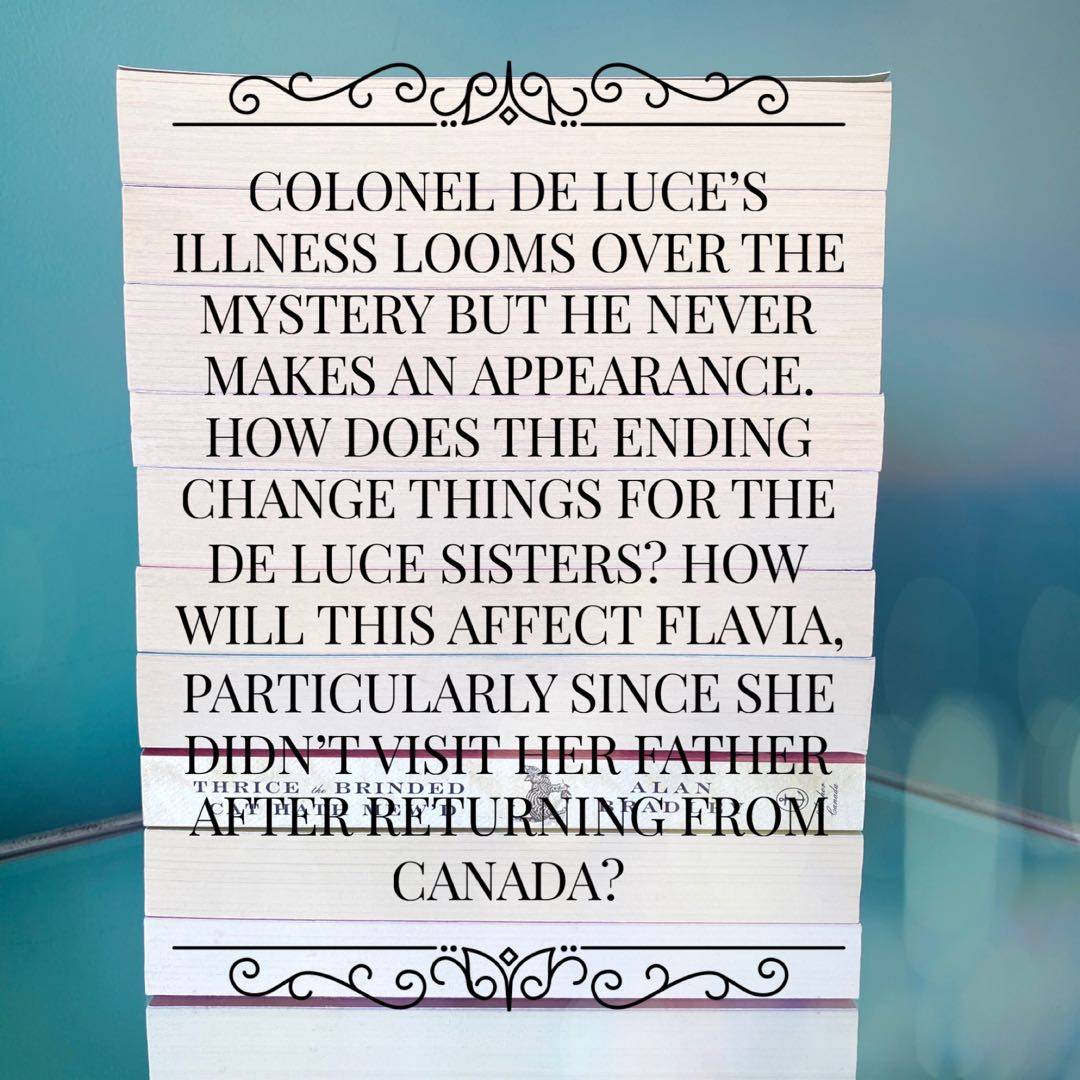 COLONEL DE LUCE’S
ILLNESS LOOMS OVER THE
MYSTERY BUT HE NEVER
MAKES AN APPEARANCE.
HOW DOES THE ENDING
CHANGE THINGS FOR THE
DE LUCE SISTERS? HOW
WILL THIS AFFECT FLAVIA,
PARTICULARLY SINCE SHE
DIDN’T VISIT HER FATHER
AFTER RETURNING FROM
CANADA?
THRICE the BRINDED
CAT HATH MEW'D
ALAN
BRADLEY